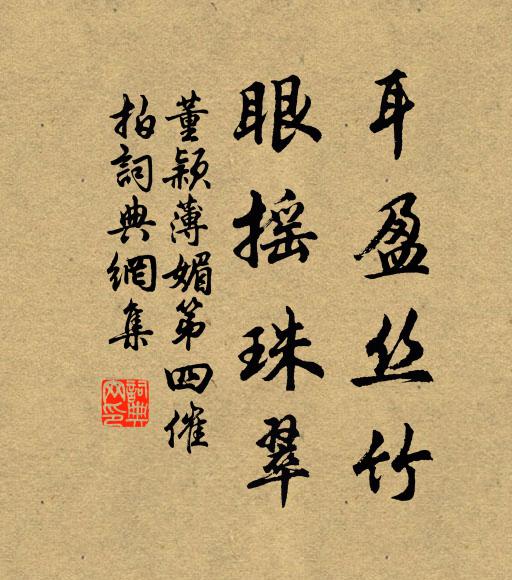 耳盈丝竹
眼摇珠翠
董颖薄媚第四催
拍詞典網集
詞典